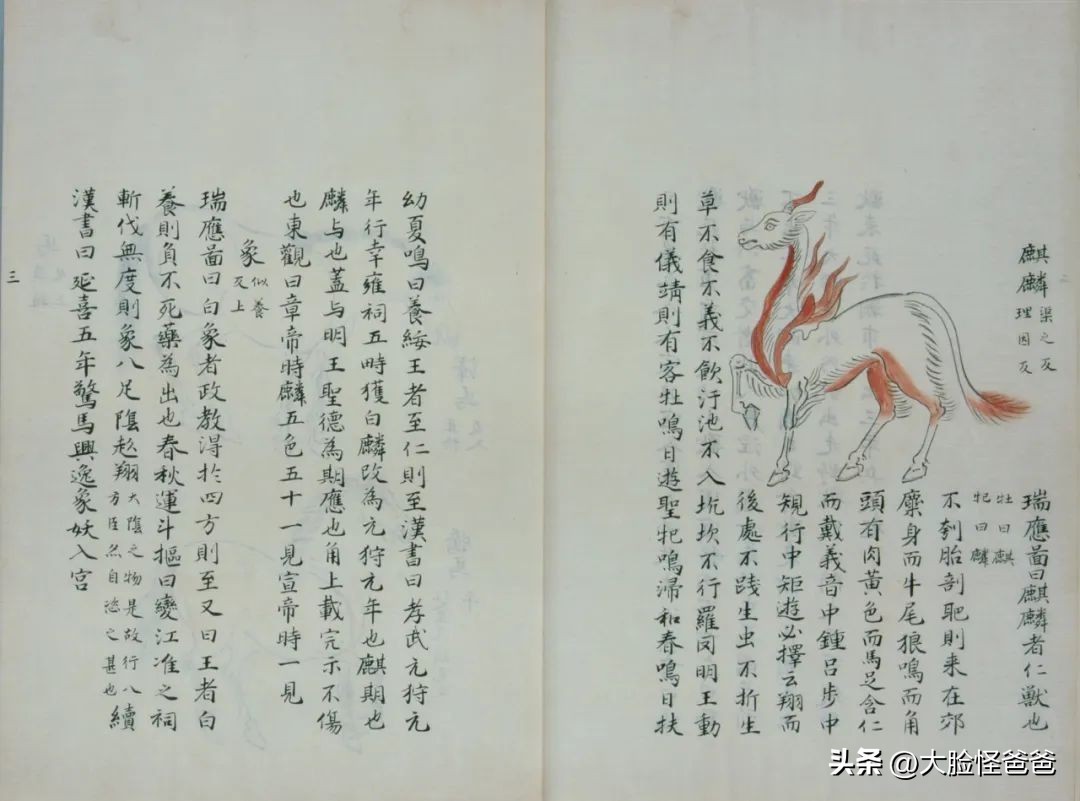 麒麟渠之反
理因反
瑞應啚曰麒麟者仁獸也
牡曰麒
牝曰麟
不刳胎剖
則来在郊
麋身而牛尾狼鳴而角
頭有肉黄色而馬足含仁
而戴義音中鍾吕步中
規行中矩遊必擇云翔而
後處不践生虫不折生
草不食不義不飲汙池不入
坑坎不行羅罔明王動
則有儀靖則有客牡鳴日遊聖牝鳴㱕和春鳴日扶
幼夏鳴曰養綏王者至仁則至漢書曰孝武元狩元
年行幸雍祠五畤獲白麟改為元狩元年也麒期也
麟与也盖与明王聖德為期應也角上載完示不傷
也東觀曰章帝時麟五色五十一見宣帝時一見
象似養
反上
瑞應啚曰白象者政教淂於四方則至又曰王者自
養則負不死藥為出也春秋運斗摳曰變江淮之祠
斬伐無度則象八足陰赵翔大陰之物是故行八續
方臣然自恣之甚也
漢書曰延喜五年驚馬興逸象妖入宫
三
头条 @大脸怪爸爸